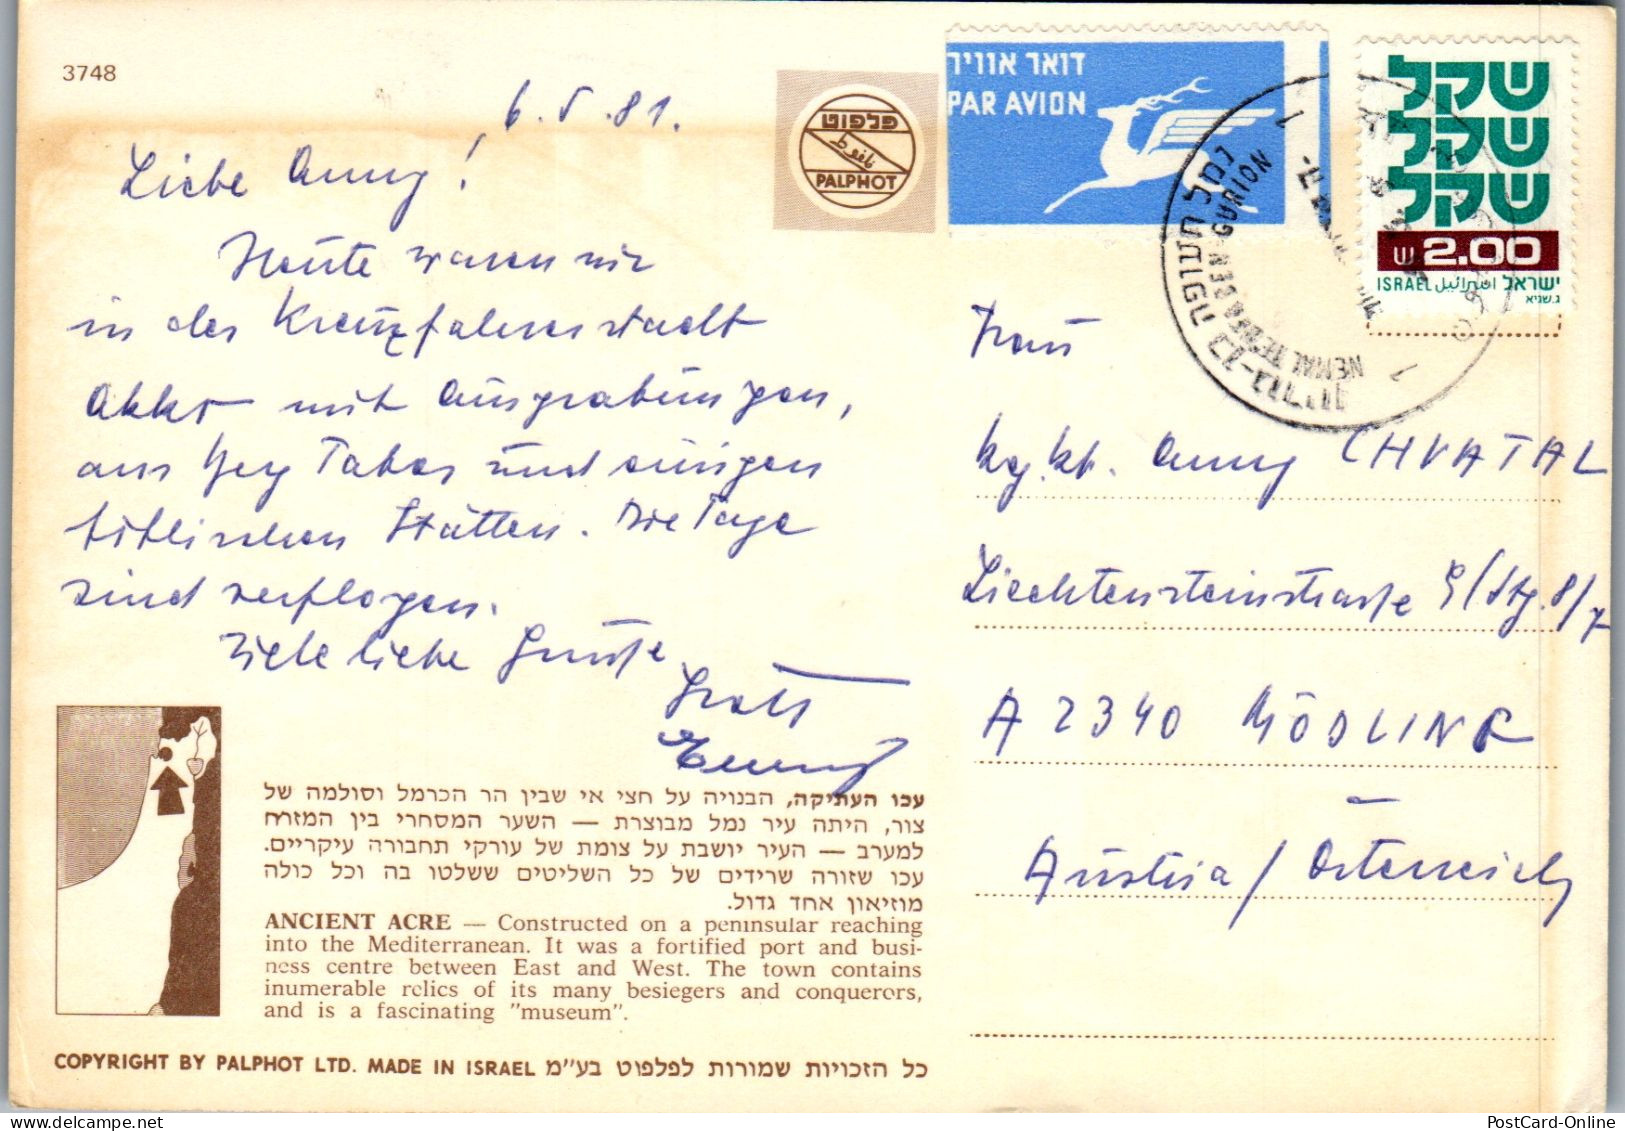 3748
6.5.81.
Liebe Anny!
Heute waren wir
in der Kreuzfahrerstadt
Akko mit Ausgrabungen,
am Berg Tabor und einigen
biblischen Stätten. Die Tage
sind verflogen.
Viele liebe Grüße
פלפוט
PALPHOT
דואר אוויר
PAR AVION
שקל
שקל
שקל
2.00
ISRAEL اسرائيل ישראל
ג. שגיא
נמל תעופה בן-גוריון
BEN GURION
Frau
Anny CHVATAL
Liechtensteinstraße 9/Stg. 8/7
A 2340 MÖDLING
Austria / Österreich
עכו העתיקה, הבנויה על חצי אי שבין הר הכרמל וסולמה של
צור, היתה עיר נמל מבוצרת — השער המסחרי בין המזרח
למערב — העיר יושבת על צומת של עורקי תחבורה עיקריים.
עכו שזורה שרידים של כל השליטים ששלטו בה וכל כולה
מוזיאון אחד גדול.
ANCIENT ACRE — Constructed on a peninsular reaching
into the Mediterranean. It was a fortified port and busi-
ness centre between East and West. The town contains
inumerable relics of its many besiegers and conquerors,
and is a fascinating "museum".
COPYRIGHT BY PALPHOT LTD. MADE IN ISRAEL כל הזכויות שמורות לפלפוט בע"מ
PostCard-Online